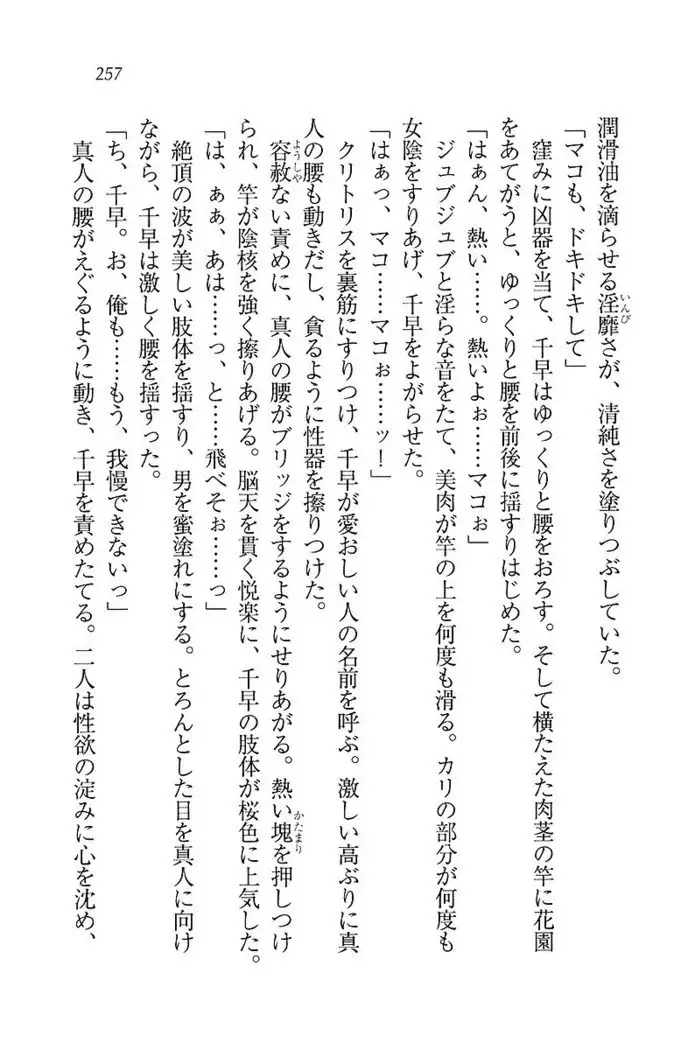 257
潤滑油を滴らせる淫靡さが、清純さを塗りつぶしていた。
「マコも、ドキドキして」
窪みに凶器を当て、千早はゆっくりと腰をおろす。そして横たえた肉茎の竿に花園
をあてがうと、ゆっくりと腰を前後に揺すりはじめた。
「はぁん、熱い……。熱いよぉ……マコぉ」
ジュブジュブと淫らな音をたて、美肉が竿の上を何度も滑る。カリの部分が何度も
女陰をすりあげ、千早をよがらせた。
「はぁっ、マコ……マコぉ……ッ！」
クリトリスを裏筋にすりつけ、千早が愛おしい人の名前を呼ぶ。激しい高ぶりに真
人の腰も動きだし、貪るように性器を擦りつけた。
容赦ない責めに、真人の腰がブリッジをするようにせりあがる。熱い塊を押しつけ
られ、竿が陰核を強く擦りあげる。脳天を貫く悦楽に、千早の肢体が桜色に上気した。
「は、ぁぁ、あは……っ、と……飛べそぉ……っ」
絶頂の波が美しい肢体を揺すり、男を蜜塗れにする。とろんとした目を真人に向け
ながら、千早は激しく腰を揺すった。
「ち、千早。お、俺も……もう、我慢できないっ」
真人の腰がえぐるように動き、千早を責めたてる。二人は性欲の淀みに心を沈め、